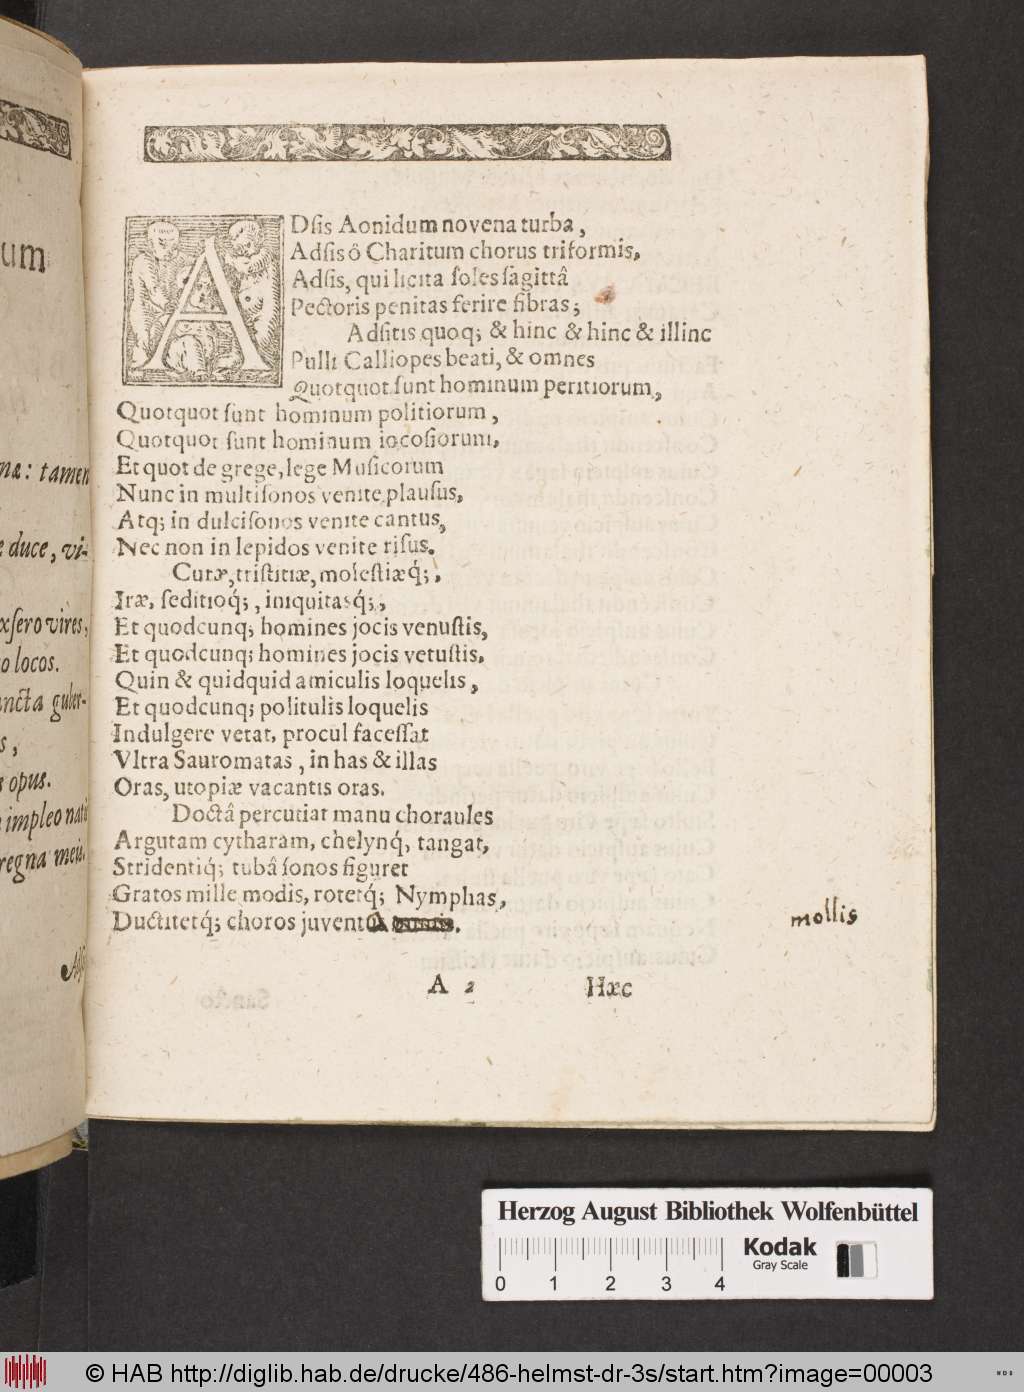 um
næ: tamen
e duce, vi-
xſero vires,
o locos.
ancta guber-
s,
s opus.
impleo nati
regna meis.
ADſis Aonidum novena turba,
Adſis ô Charitum chorus triformis,
Adſis, qui licita ſoles ſagittâ
Pectoris penitas ferire fibras;
Adſitis quoq; & hinc & hinc & illinc
Pulli Calliopes beati, & omnes
Quotquot ſunt hominum peritiorum,
Quotquot ſunt hominum politiorum,
Quotquot ſunt hominum iocoſiorum,
Et quot de grege, lege Muſicorum
Nunc in multiſonos venite plauſus,
Atq; in dulciſonos venite cantus,
Nec non in lepidos venite riſus.
Curæ, triſtitiæ, moleſtiæq́;,
Iræ, ſeditioq́;, iniquitasq́;,
Et quodcunq; homines jocis venuſtis,
Et quodcunq; homines jocis vetuſtis,
Quin & quidquid amiculis loquelis,
Et quodcunq; politulis loquelis
Indulgere vetat, procul faceſſat
Vltra Sauromatas, in has & illas
Oras, utopiæ vacantis oras.
Doctâ percutiat manu choraules
Argutam cytharam, chelynq́, tangat,
Stridentiq́; tubâ ſonos figuret
Gratos mille modis, rotetq́; Nymphas,
Ductitetq́; choros juventa
mollis
A 2 Hæc
Herzog August Bibliothek Wolfenbüttel
Kodak
Gray Scale
0 1 2 3 4
© HAB http://diglib.hab.de/drucke/486-helmst-dr-3s/start.htm?image=00003